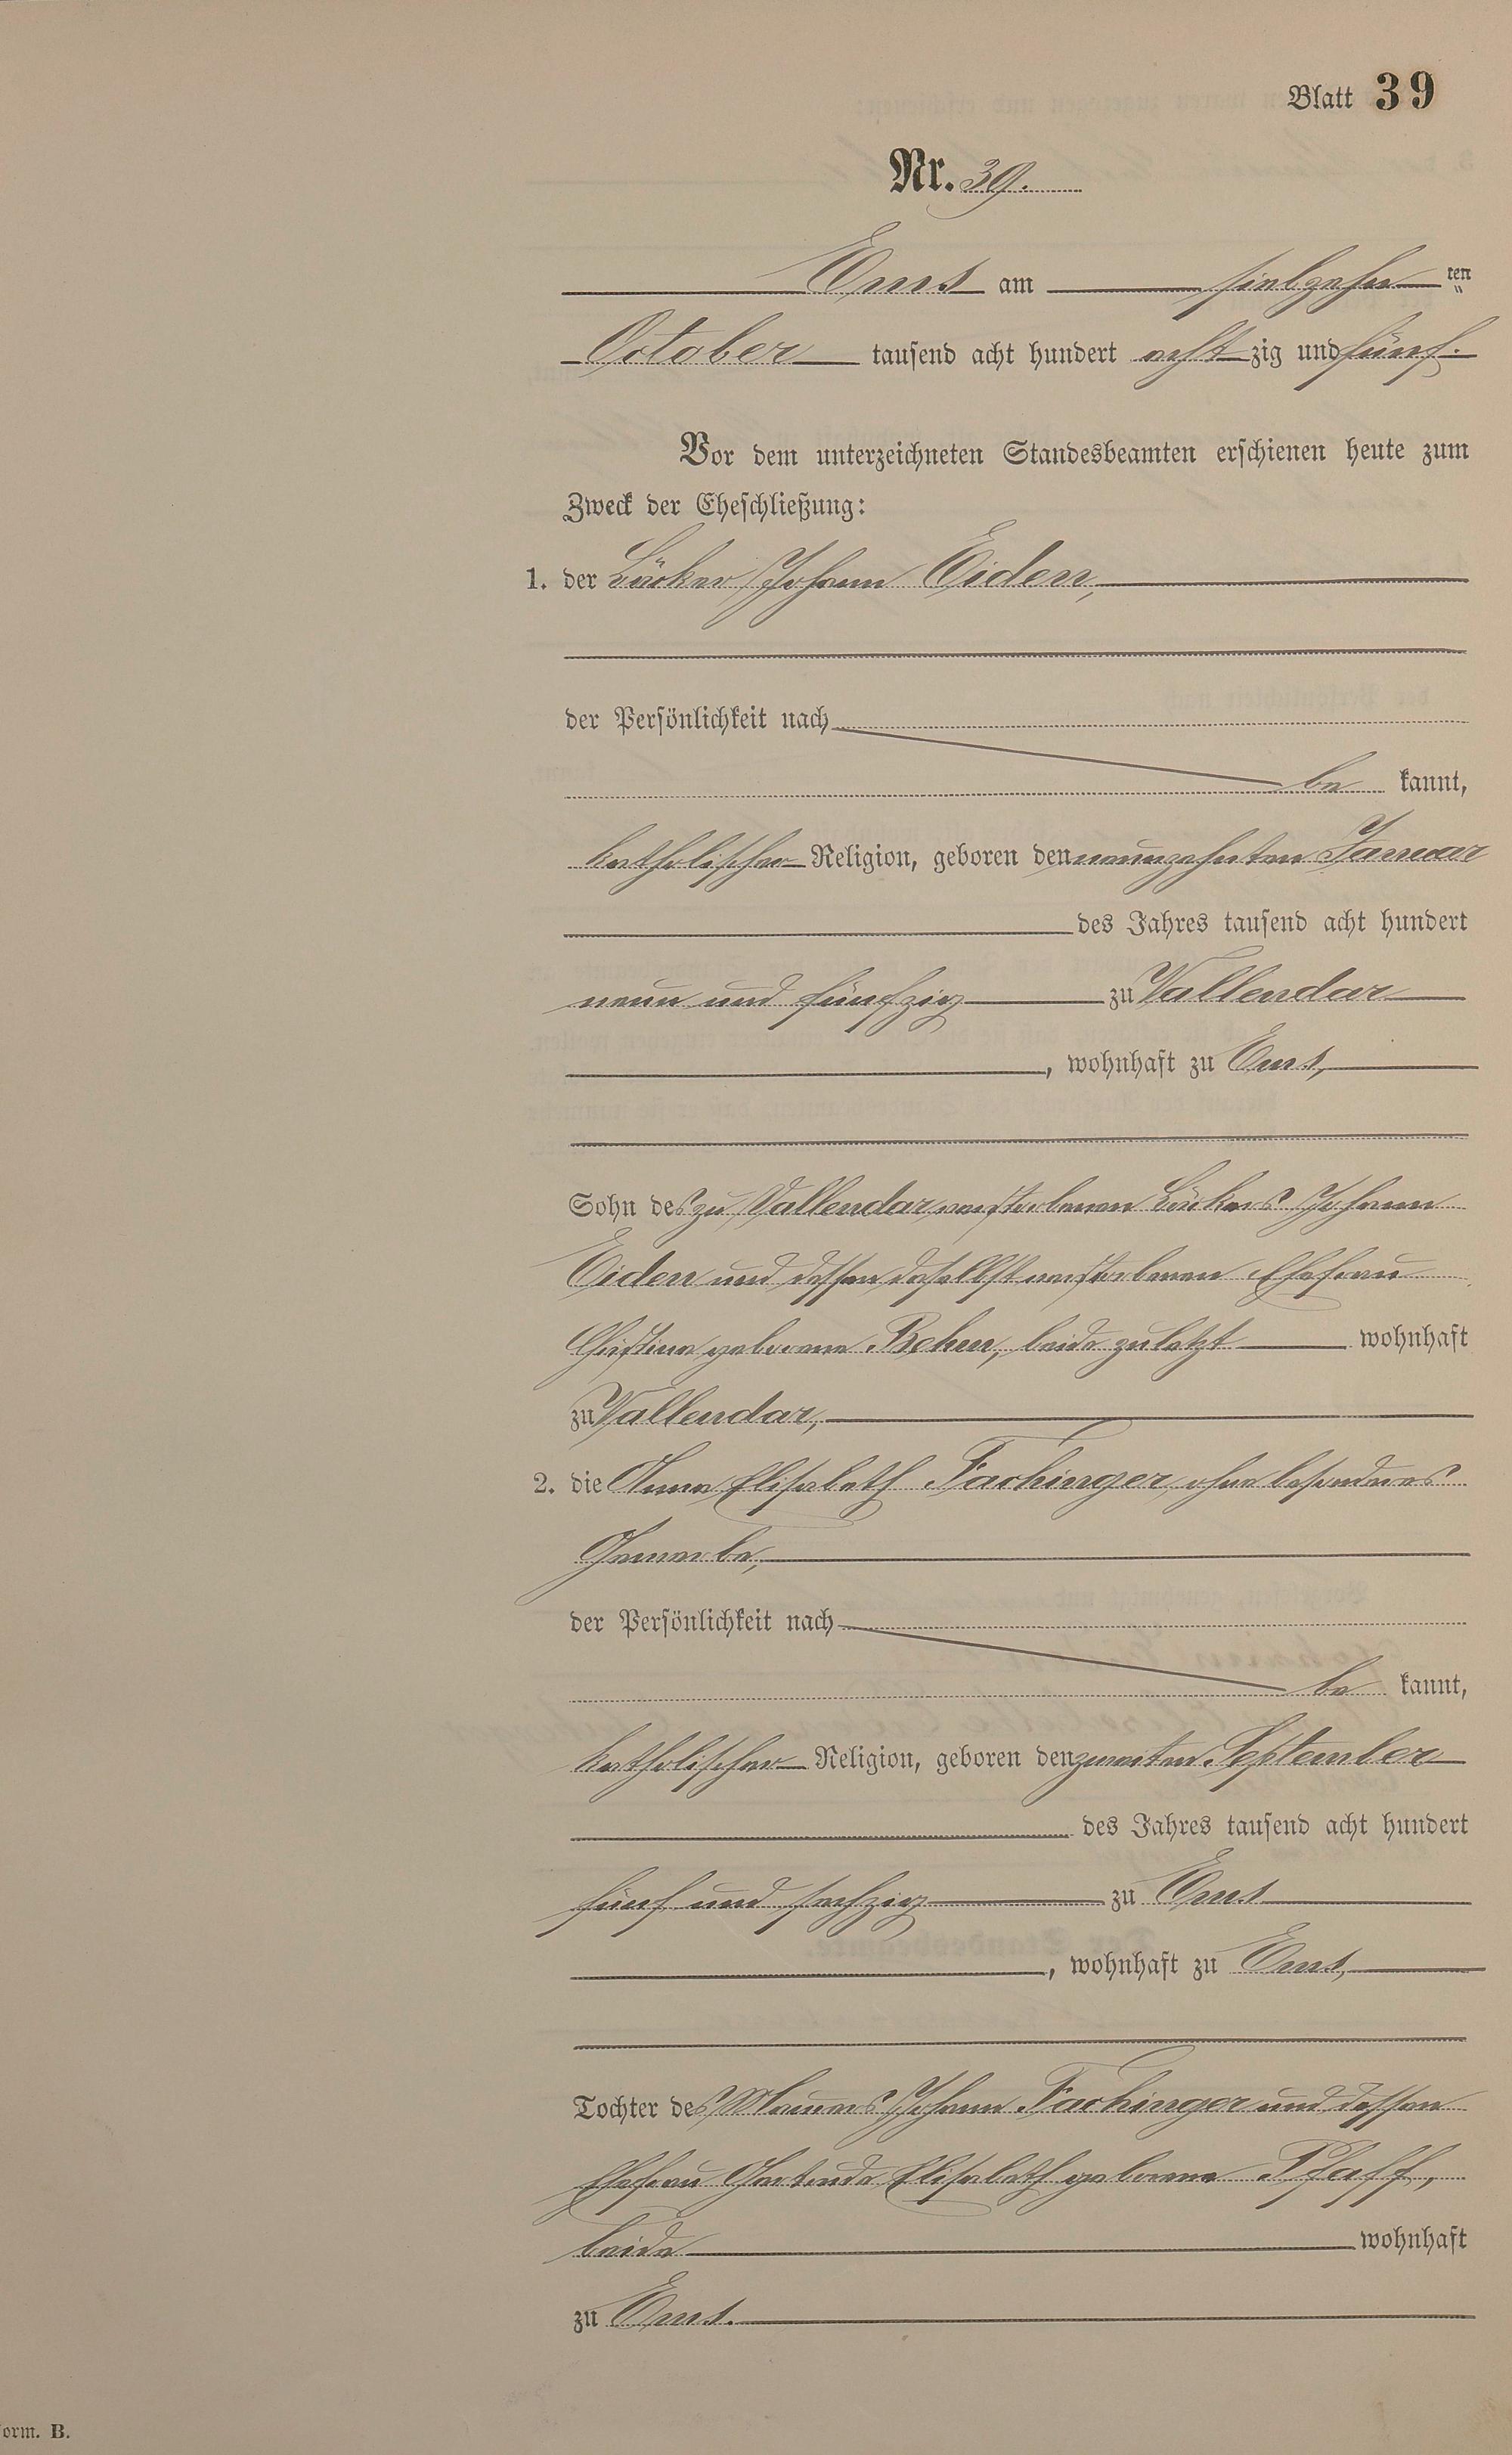 Blatt 39
Nr. 39.
Ems am siebzehn ten
October tausend acht hundert acht zig und fünf.
Vor dem unterzeichneten Standesbeamten erschienen heute zum
Zweck der Eheschließung:
1. der Bäcker Johann Eiden,
der Persönlichkeit nach
be kannt,
katholischer Religion, geboren den neunzehnten Januar
des Jahres tausend acht hundert
neun und fünfzig zu Vallendar
, wohnhaft zu Ems,
Sohn des zu Vallendar verstorbenen Bäckers Johann
Eiden und dessen daselbst verstorbenen Ehefrau
Christine geborene Behen, beide zuletzt wohnhaft
zu Vallendar,
2. die Anna Elisabeth Fachinger, ohne besonderes
Gewerbe,
der Persönlichkeit nach
be kannt,
katholischer Religion, geboren den zweiten September
des Jahres tausend acht hundert
fünf und sechzig zu Ems
, wohnhaft zu Ems,
Tochter des Maurers Johann Fachinger und dessen
Ehefrau Gertrude Elisabeth geborene Pfaff,
beide wohnhaft
zu Ems.
orm. B.